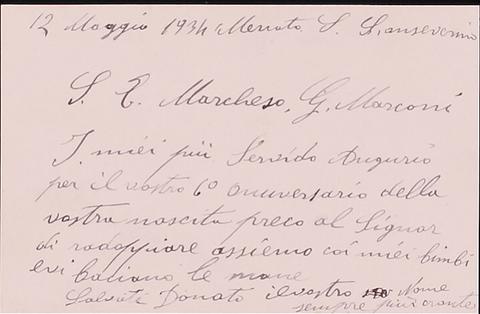 12 Maggio 1934 Mercato S. Sanseverino
S. E. Marchese, G. Marconi
I miei più Fervido Augurio
per il vostro 60 anniversario della
vostra nascita preco al Signor
di radoppiare assiemo coi miei bimbi
e vi baciano le mane
Salvati Donato il vostro Nome
sempre più